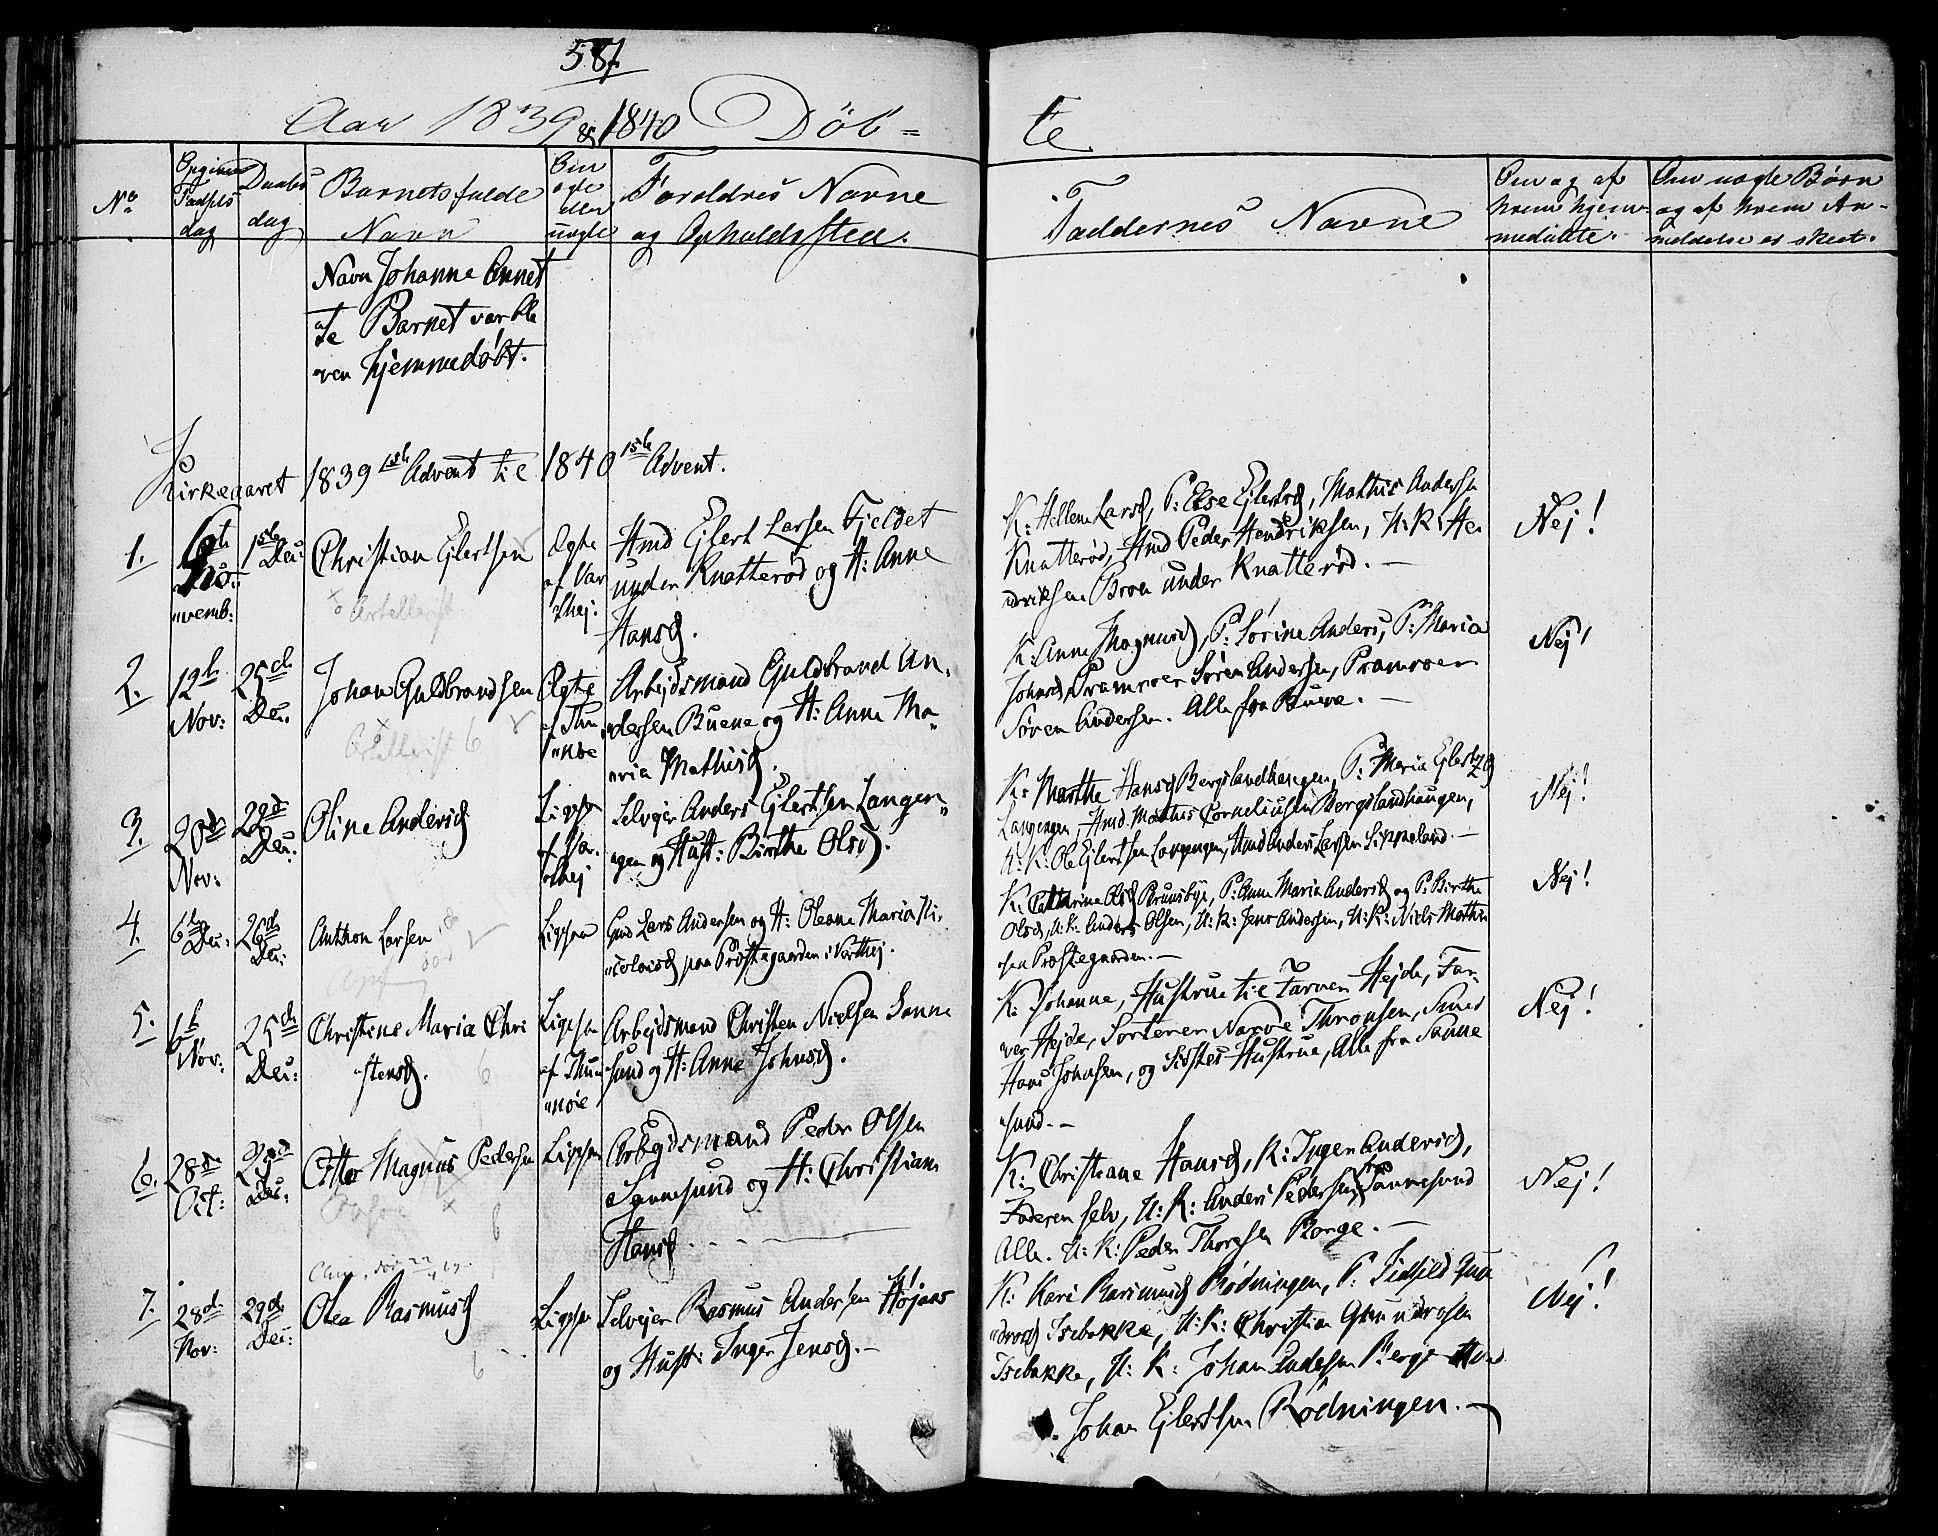 587
Aar 1839 & 1840 Döb=
te
No.
Opgiven Fødsels dag
Daabs dag
Barnets fulde Navn
Om ægte eller uægte
Forældres Navne og Opholdssted.
Faddernes Navne
Om og af hvem hjemmedøbte.
Om uægte Børn og af hvem Anmeldelse er skeet.
Navn Johanne Annet
te Barnet var ble
ven hjemmedöbt.
Kirkeaaret 1839 1ste Advent til 1840 1ste Advent.
1.
Novemb:
1ste Dec:
Christian Ejlertsen
Ægte
af Var
Hmd Ejlert Larsen Fjeldet
under Knatterød og H: Anne
Hansd.
K: Hellene Larsd, P: Else Ejlertsd, Mathis Andersen
Knatterød, Hmd Peder Hendriksen, U: K: He
ndriksen Broen under Knatterød. —
Nej!
2.
12te Nov:
25de Dec.
Johan Guldbrandsen
Ægte
af Thu
nøe
Arbejdsmand Guldbrand An,
dersen Buene og H: Anne Ma
ria Mathisd.
K: Anne Magnusd, P: Sörine Anders, P: Maria
Johnsd, Pramroer Sören Andersen, Pramroer
Sören Andersen. Alle fra Buene. —
Nej!
3.
20de Nov:
29de Dec:
Oline Andersd
Ligesen
Selvejer Anders Ejlertsen Langen
gen og Hust: Birthe Olsd.
K: Marthe Hansd Bergslandhaugen, P: Maria Ejlertsd
Langengen, Hmd Mathis Corneliusen Bergslandhaugen,
U: K: Ole Ejlertsen Langengen, Hmd Anders Larsen Sippeland. —
Nej!
4.
6te Dec:
26de Dec:
Anthon Larsen
død
Ligesen
Gmd Lars Andersen og H: Oleane Maria Ni,
colaisd paa Præstegaarden i Varthej.
K: Catharine Olsd Brunsbye, P: Anne Maria Andersd og P: Birthe
Olsd, U: K: Anders Olsen, U: K: Jens Andersen, U: K: Niels Mathi
sen Præstegaarden. —
Nej!
5.
6te Nov:
25de Dec:
Christine Maria Chri
stensd.
6
Ligesen
af Thu
nöe
Arbejdsmand Christen Nielsen Sanne
sund og H: Anne Johnsd.
K: Johanne, Hustrue til Farver Hejde, Far
ver Hejde, Sorterer Narve Thronsen, Smed
Hans Johnsen, og Sidstes Hustrue, Alle fra Sanne
sund. —
Nej!
6.
28de Oct:
25de Dec:
Otto Magnus Pedersen
6
Ligesen
Arbejdsmand Peder Olsen
Sannesund og H: Christiane
Hansd
K: Christiane Hansd, K: Inger Andersd,
Faderen selv, U: K: Anders Pedersen, Sannesund
Alle. U: K: Peder Thoresen Borge. —
Nej!
7.
28de Nov:
29de Dec:
Olea Rasmusd
6
Ligesen
Selvejer Rasmus Andersen Höjaas
og Hust: Inger Jensd. —
K: Kari Rasmusd Rödningen, P: Gun
drosd Isebakke, U: K: Christian Gundrosen
Isebakke, U: K: Johan Andersen Berge Hmd
Johan Ejlertsen Rödningen. —
Nej!